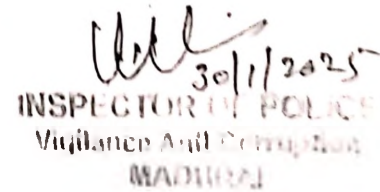 30/1/2025
INSPECTOR OF POLICE
Vigilance Anti Corruption
MADURAI